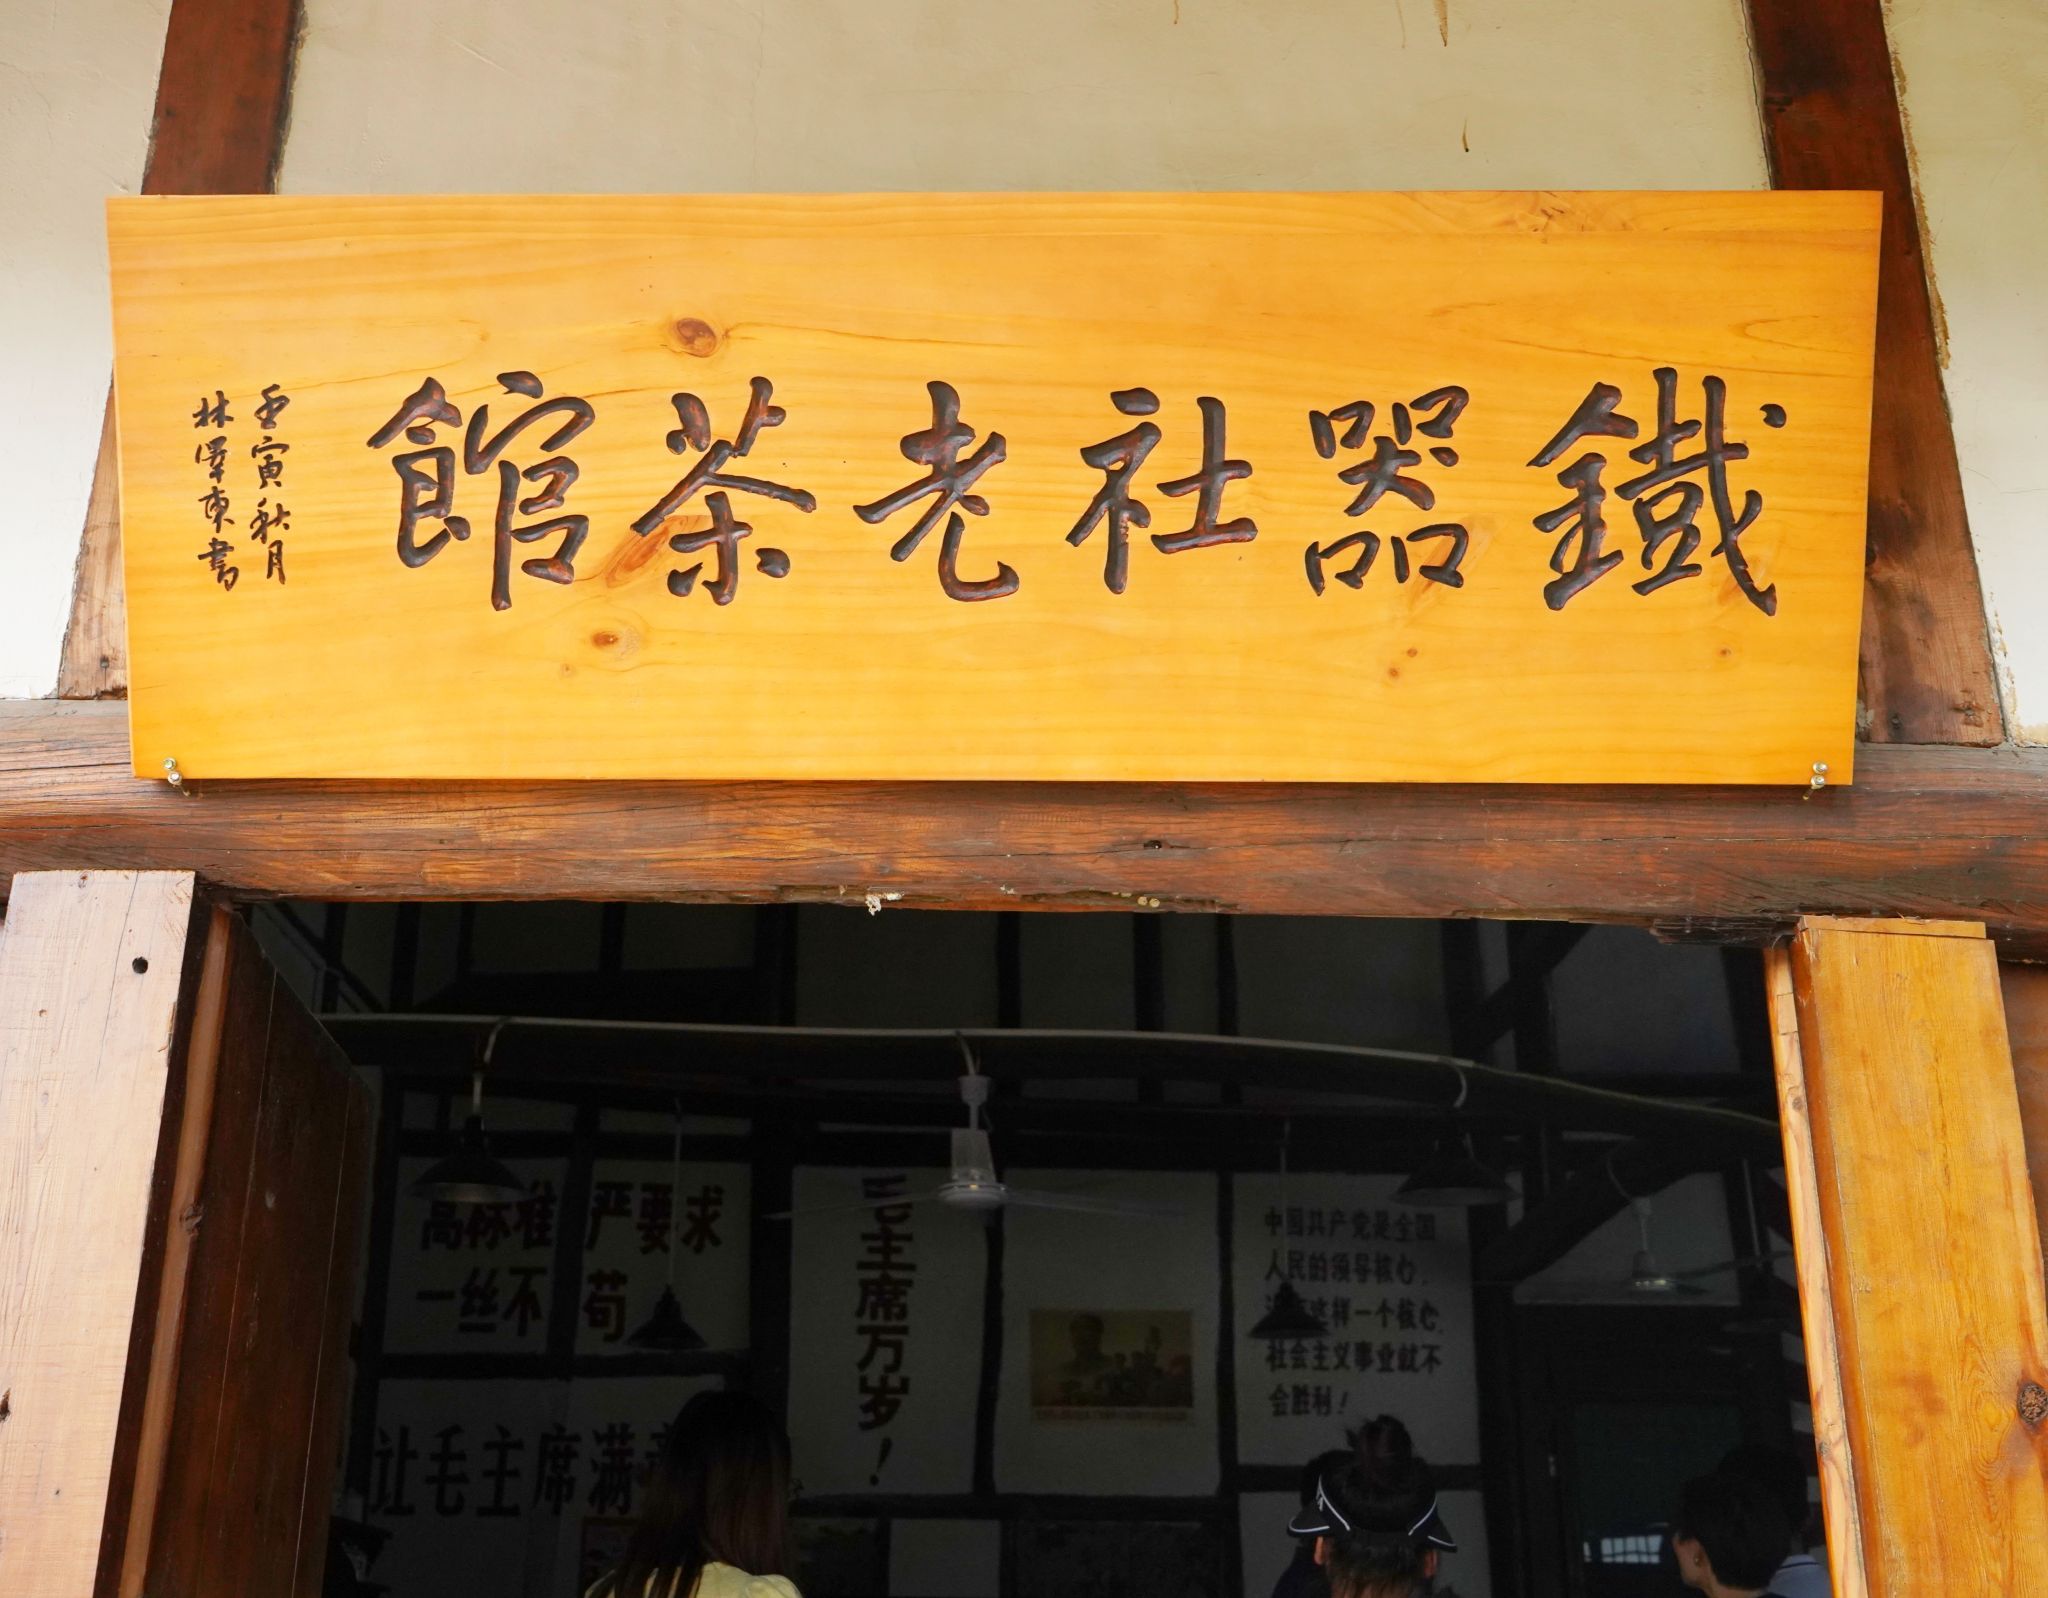 鐵器社老茶館
壬寅秋月
林澤東書
高标准 严要求
一丝不苟
让毛主席满意
毛主席万岁！
中国共产党是全国
人民的领导核心，
没有这样一个核心，
社会主义事业就不
会胜利！